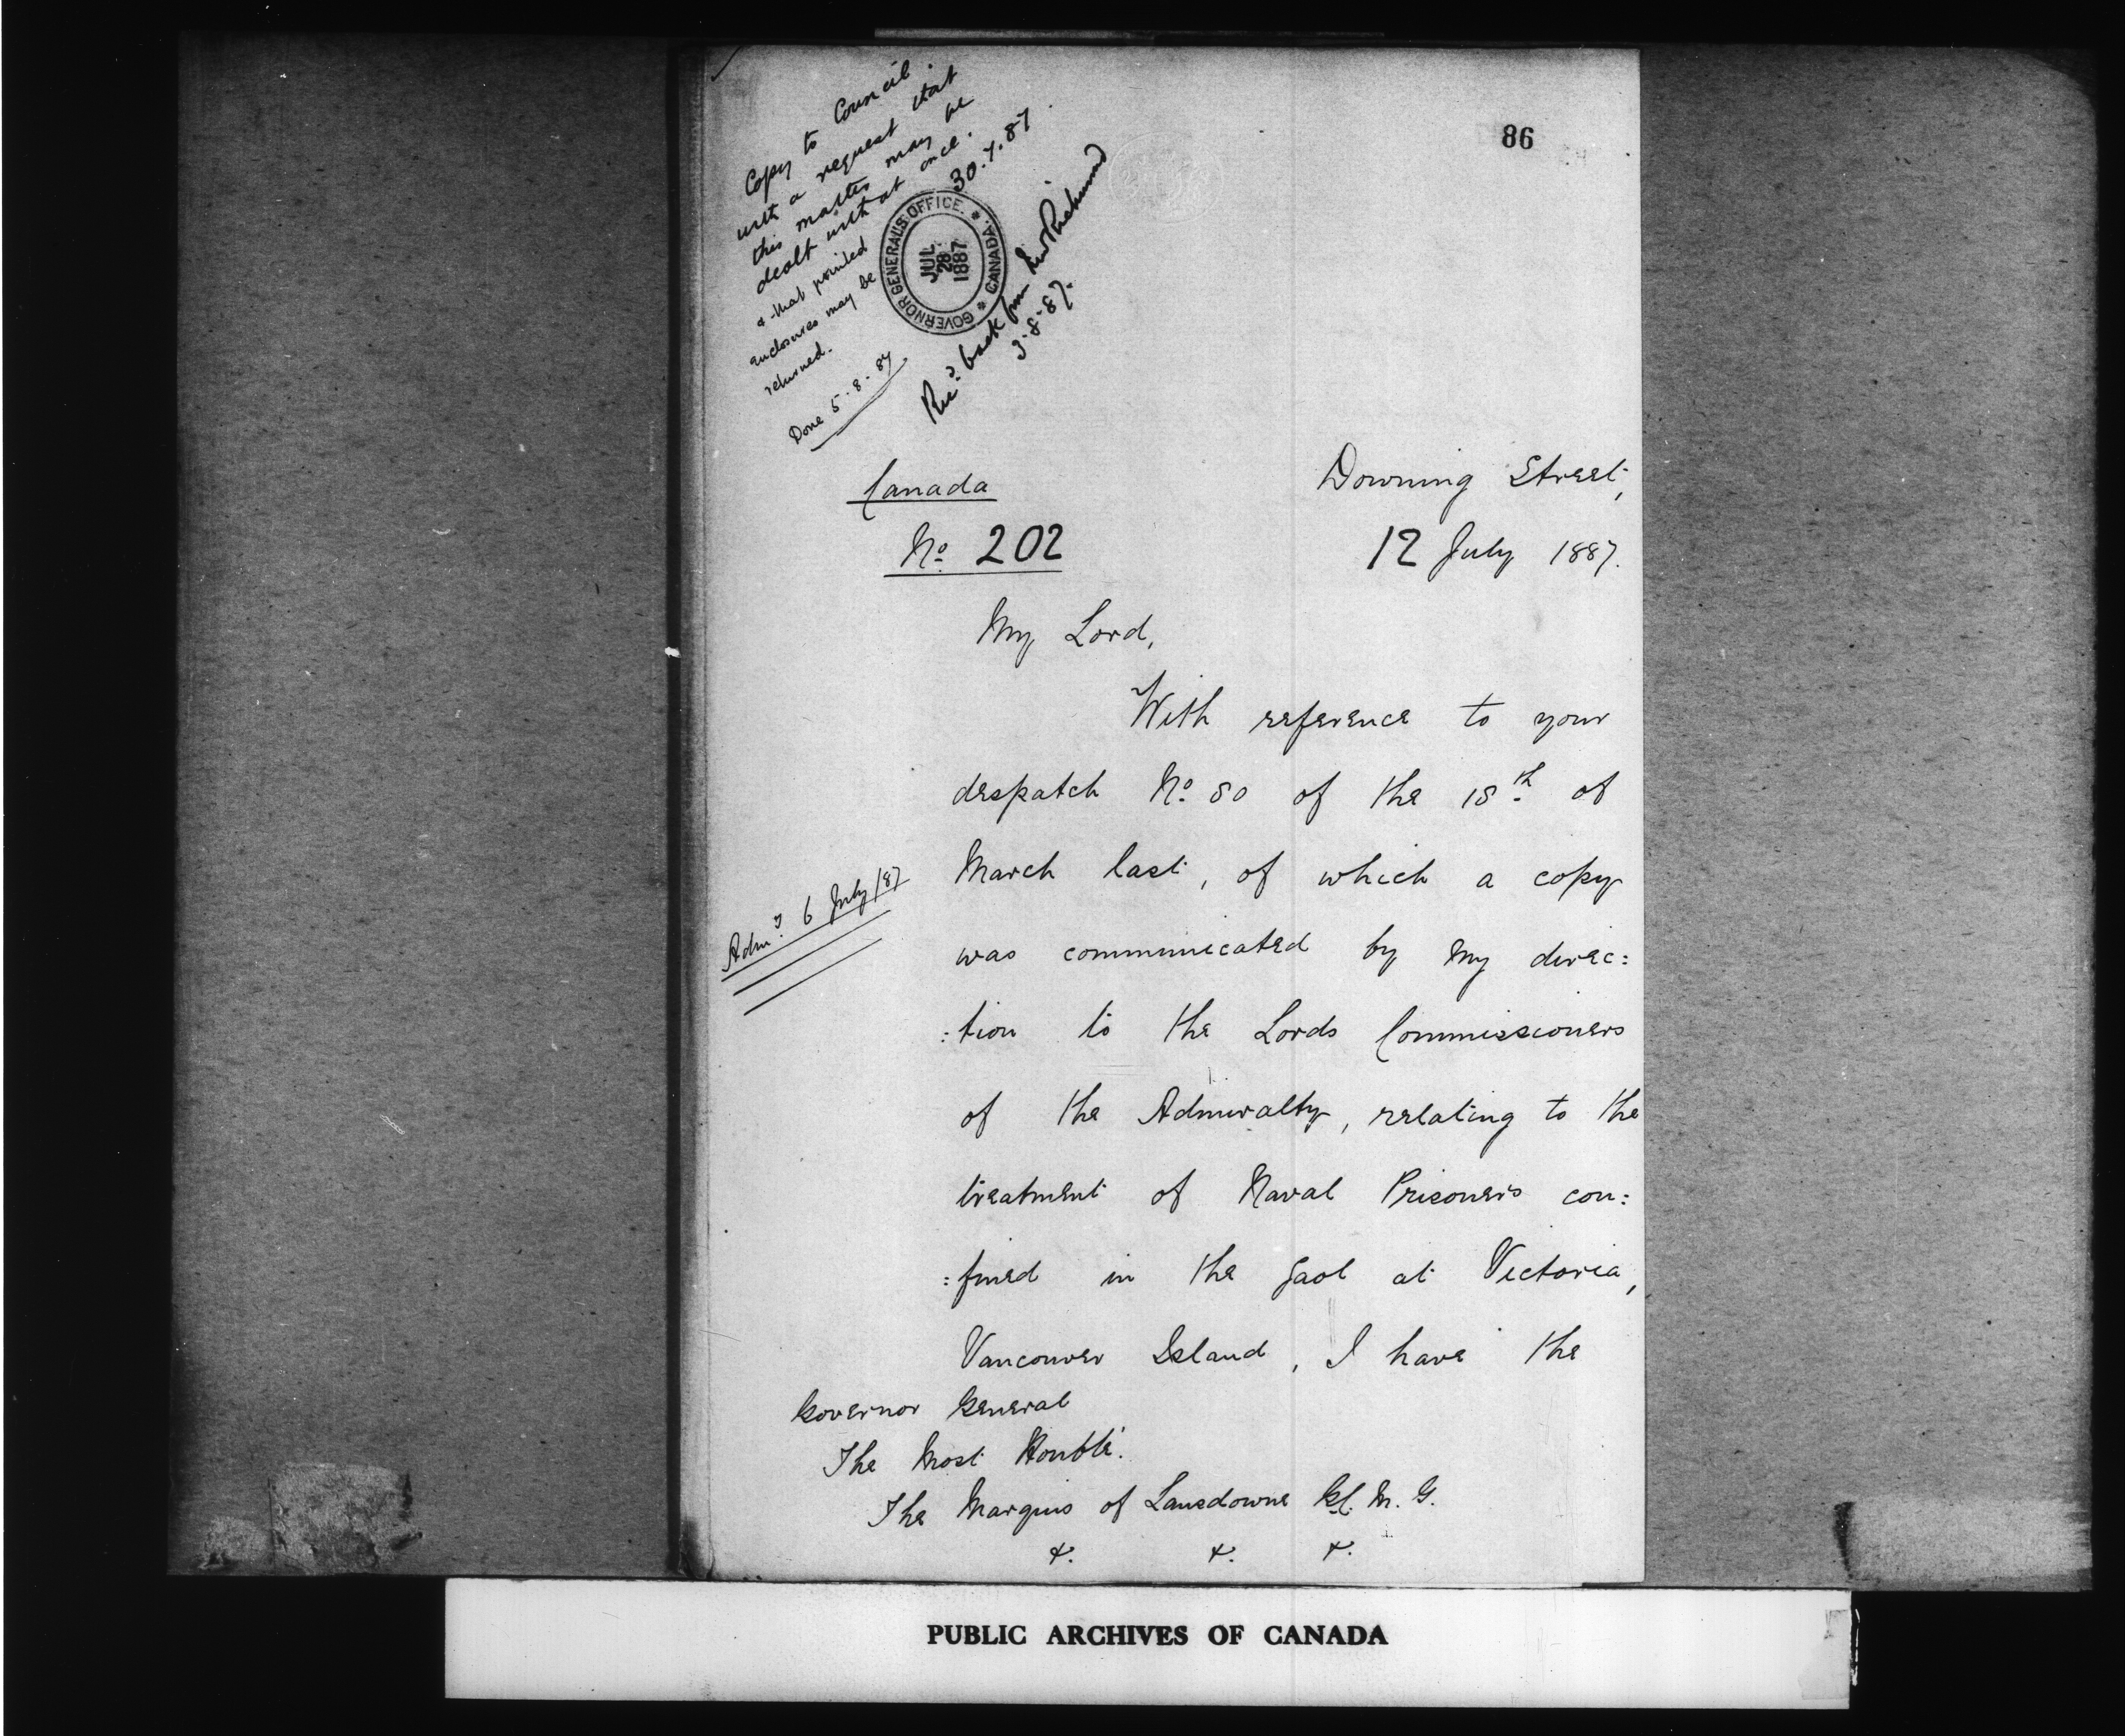 86
Copy to Council
with a request that
this matter may be
dealt with at once.
& that printed
enclosures may be
returned.
30.7.87
Done 5-8-87
GOVERNOR GENERAL'S OFFICE. * CANADA. *
JUL
28
1887
Recd. back from
3-8-87.
Canada
No. 202
Downing Street,
12 July 1887.
My Lord,
With reference to your
despatch No. 80 of the 18th of
March last, of which a copy
Admy. 6 July/87
was communicated by my direc:
:tion to the Lords Commissioners
of the Admiralty, relating to the
treatment of Naval Prisoners con:
:fined in the gaol at Victoria,
Vancouver Island, I have the
Governor General
The Most Honble.
The Marquis of Lansdowne G.C.M.G.
&. &. &.
PUBLIC ARCHIVES OF CANADA